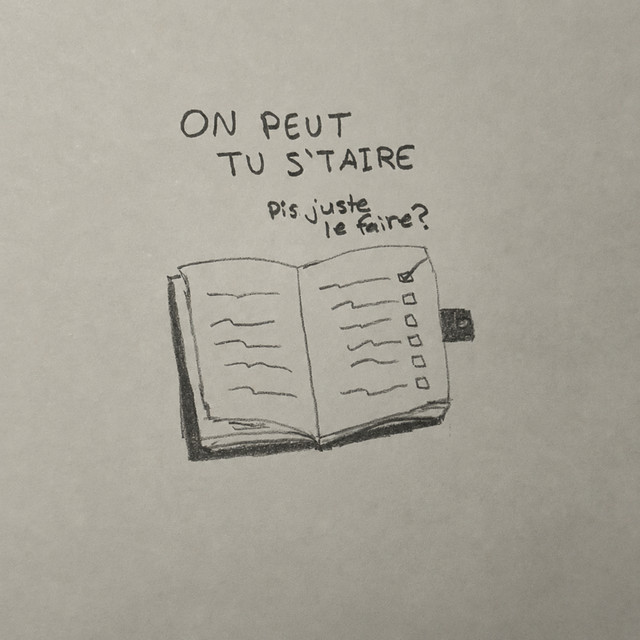 ON PEUT
TU S'TAIRE
pis juste
le faire?